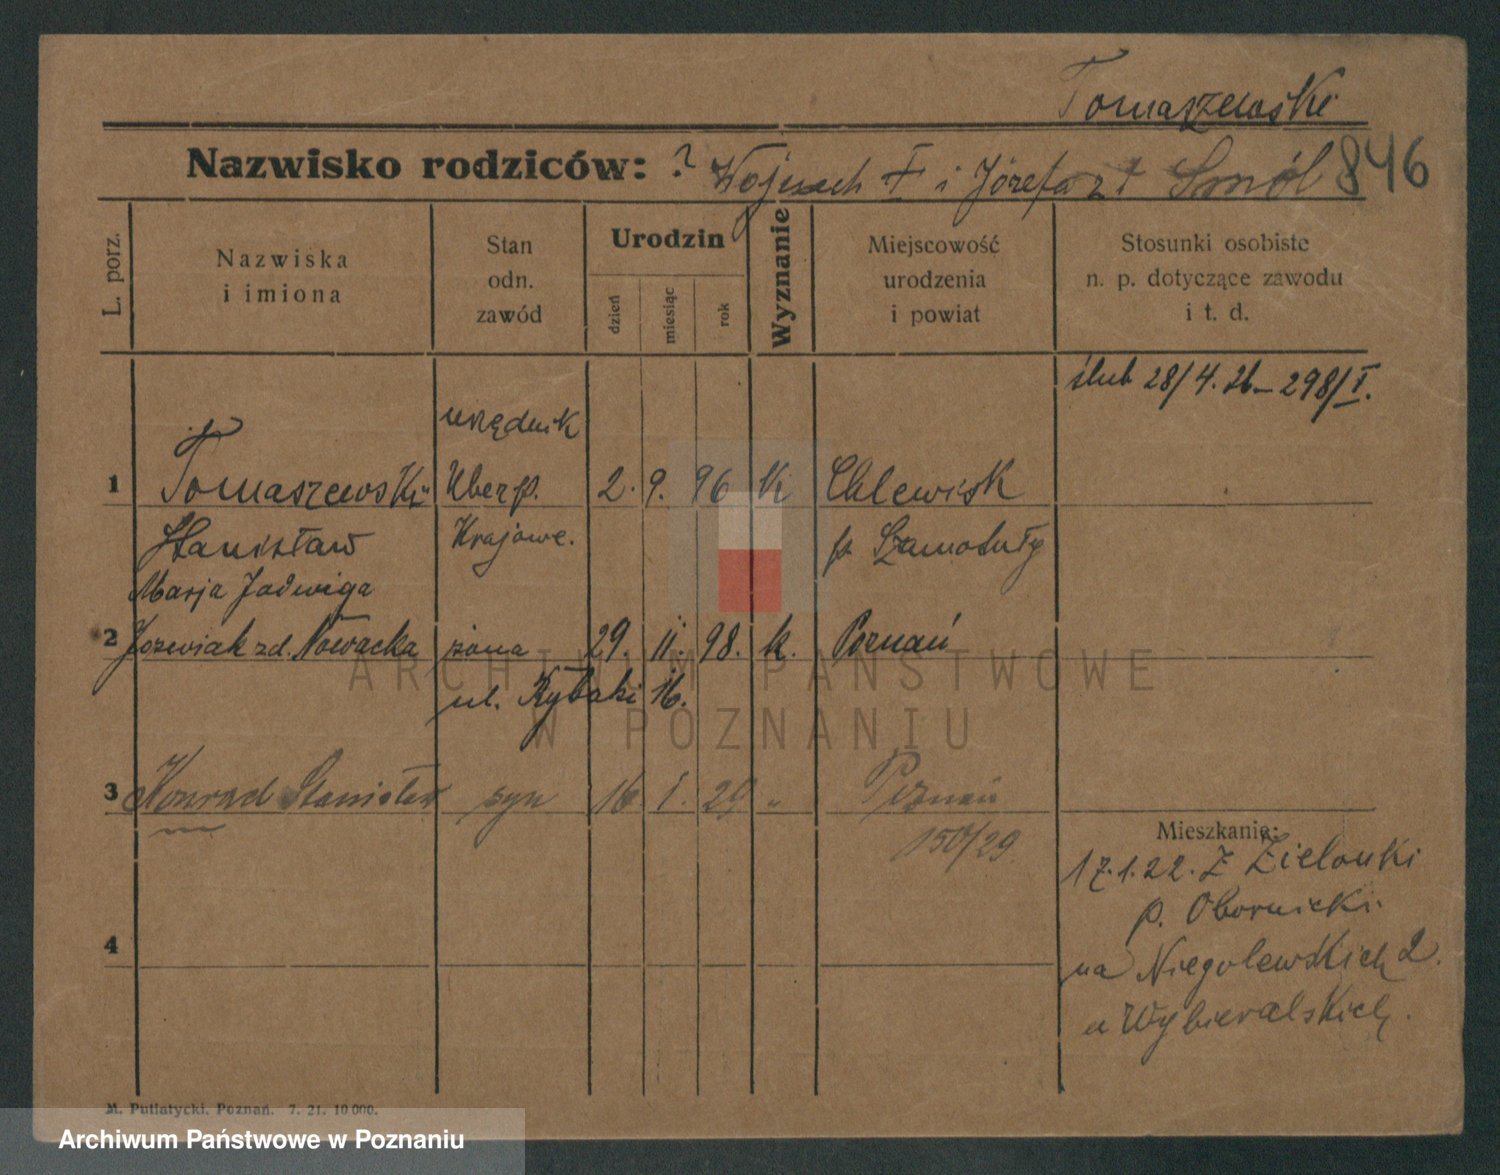 Tomaszewski
Nazwisko rodziców: ? Wojciech † i Józefa z d. Smól 846
L. porz.
Nazwiska
i imiona
Stan
odn.
zawód
Urodzin
dzień
miesiąc
rok
Wyznanie
Miejscowość
urodzenia
i powiat
Stosunki osobiste
n. p. dotyczące zawodu
i t. d.
ślub 28/4. 26 - 298/I.
urzędnik
1 Tomaszewski Uberp. 2. 9. 96 k Chlewisk
Stanisław Krajowe. p. Szamotuły
Marja Jadwiga
2 Jozewiak zd. Nowacka żona 29. 11. 98. k. Poznań
ul. Rybaki 16.
3 Konrad Stanisław syn 16 1. 29 " Poznań
150/29
Mieszkanie:
17.1.22. Z Zielonki
p. Obornicki.
4
na Niegolewskich 2.
u Wybieralskich.
M. Putiatycki. Poznań. 7. 21. 10 000.
ARCHIWUM PAŃSTWOWE
W POZNANIU
Archiwum Państwowe w Poznaniu